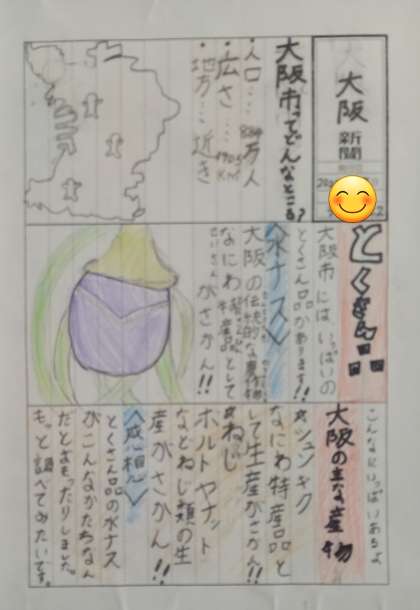 大阪
新聞
大阪市ってどんなところ?
・人口…884万人
・広さ…1905km²
・地方…近き
とくさん品
大阪市にはいっぱいの
とくさん品があります!!
〈水ナス〉
大阪の伝統的な農作物
なにわ特産品として
せいさんがさかん!!
こんなにいっぱいあるよ
大阪の主な産物
☆シュンギク
なにわ特産品と
して生産がさかん!!
☆ねじ
ボルトやナット
などねじ類の生
産がさかん!!
〈感想〉
とくさん品の水ナス
がこんなかたちなん
だとおもったりしました。
もっと調べてみたいです。